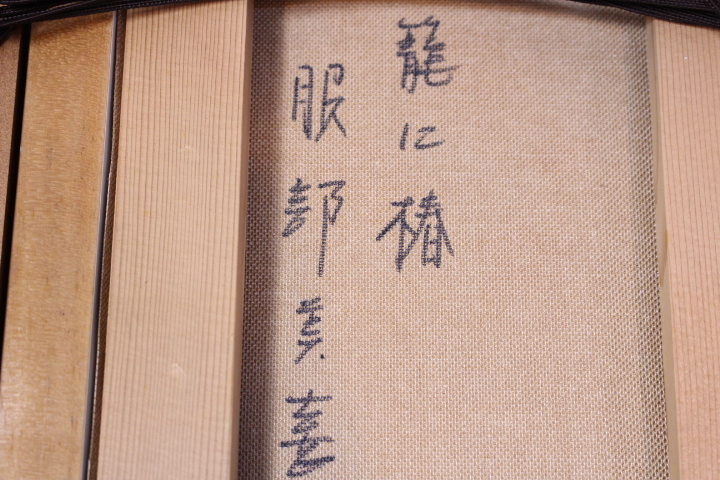 籠に椿
服部真喜